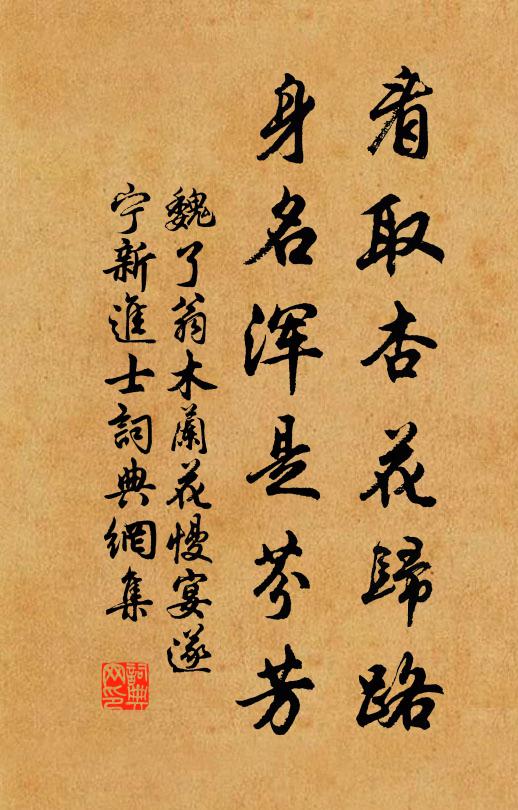 看取杏花歸路
身名浑是芬芳
魏了翁木蘭花慢宴遂
宁新進士詞典網集
詞典网印